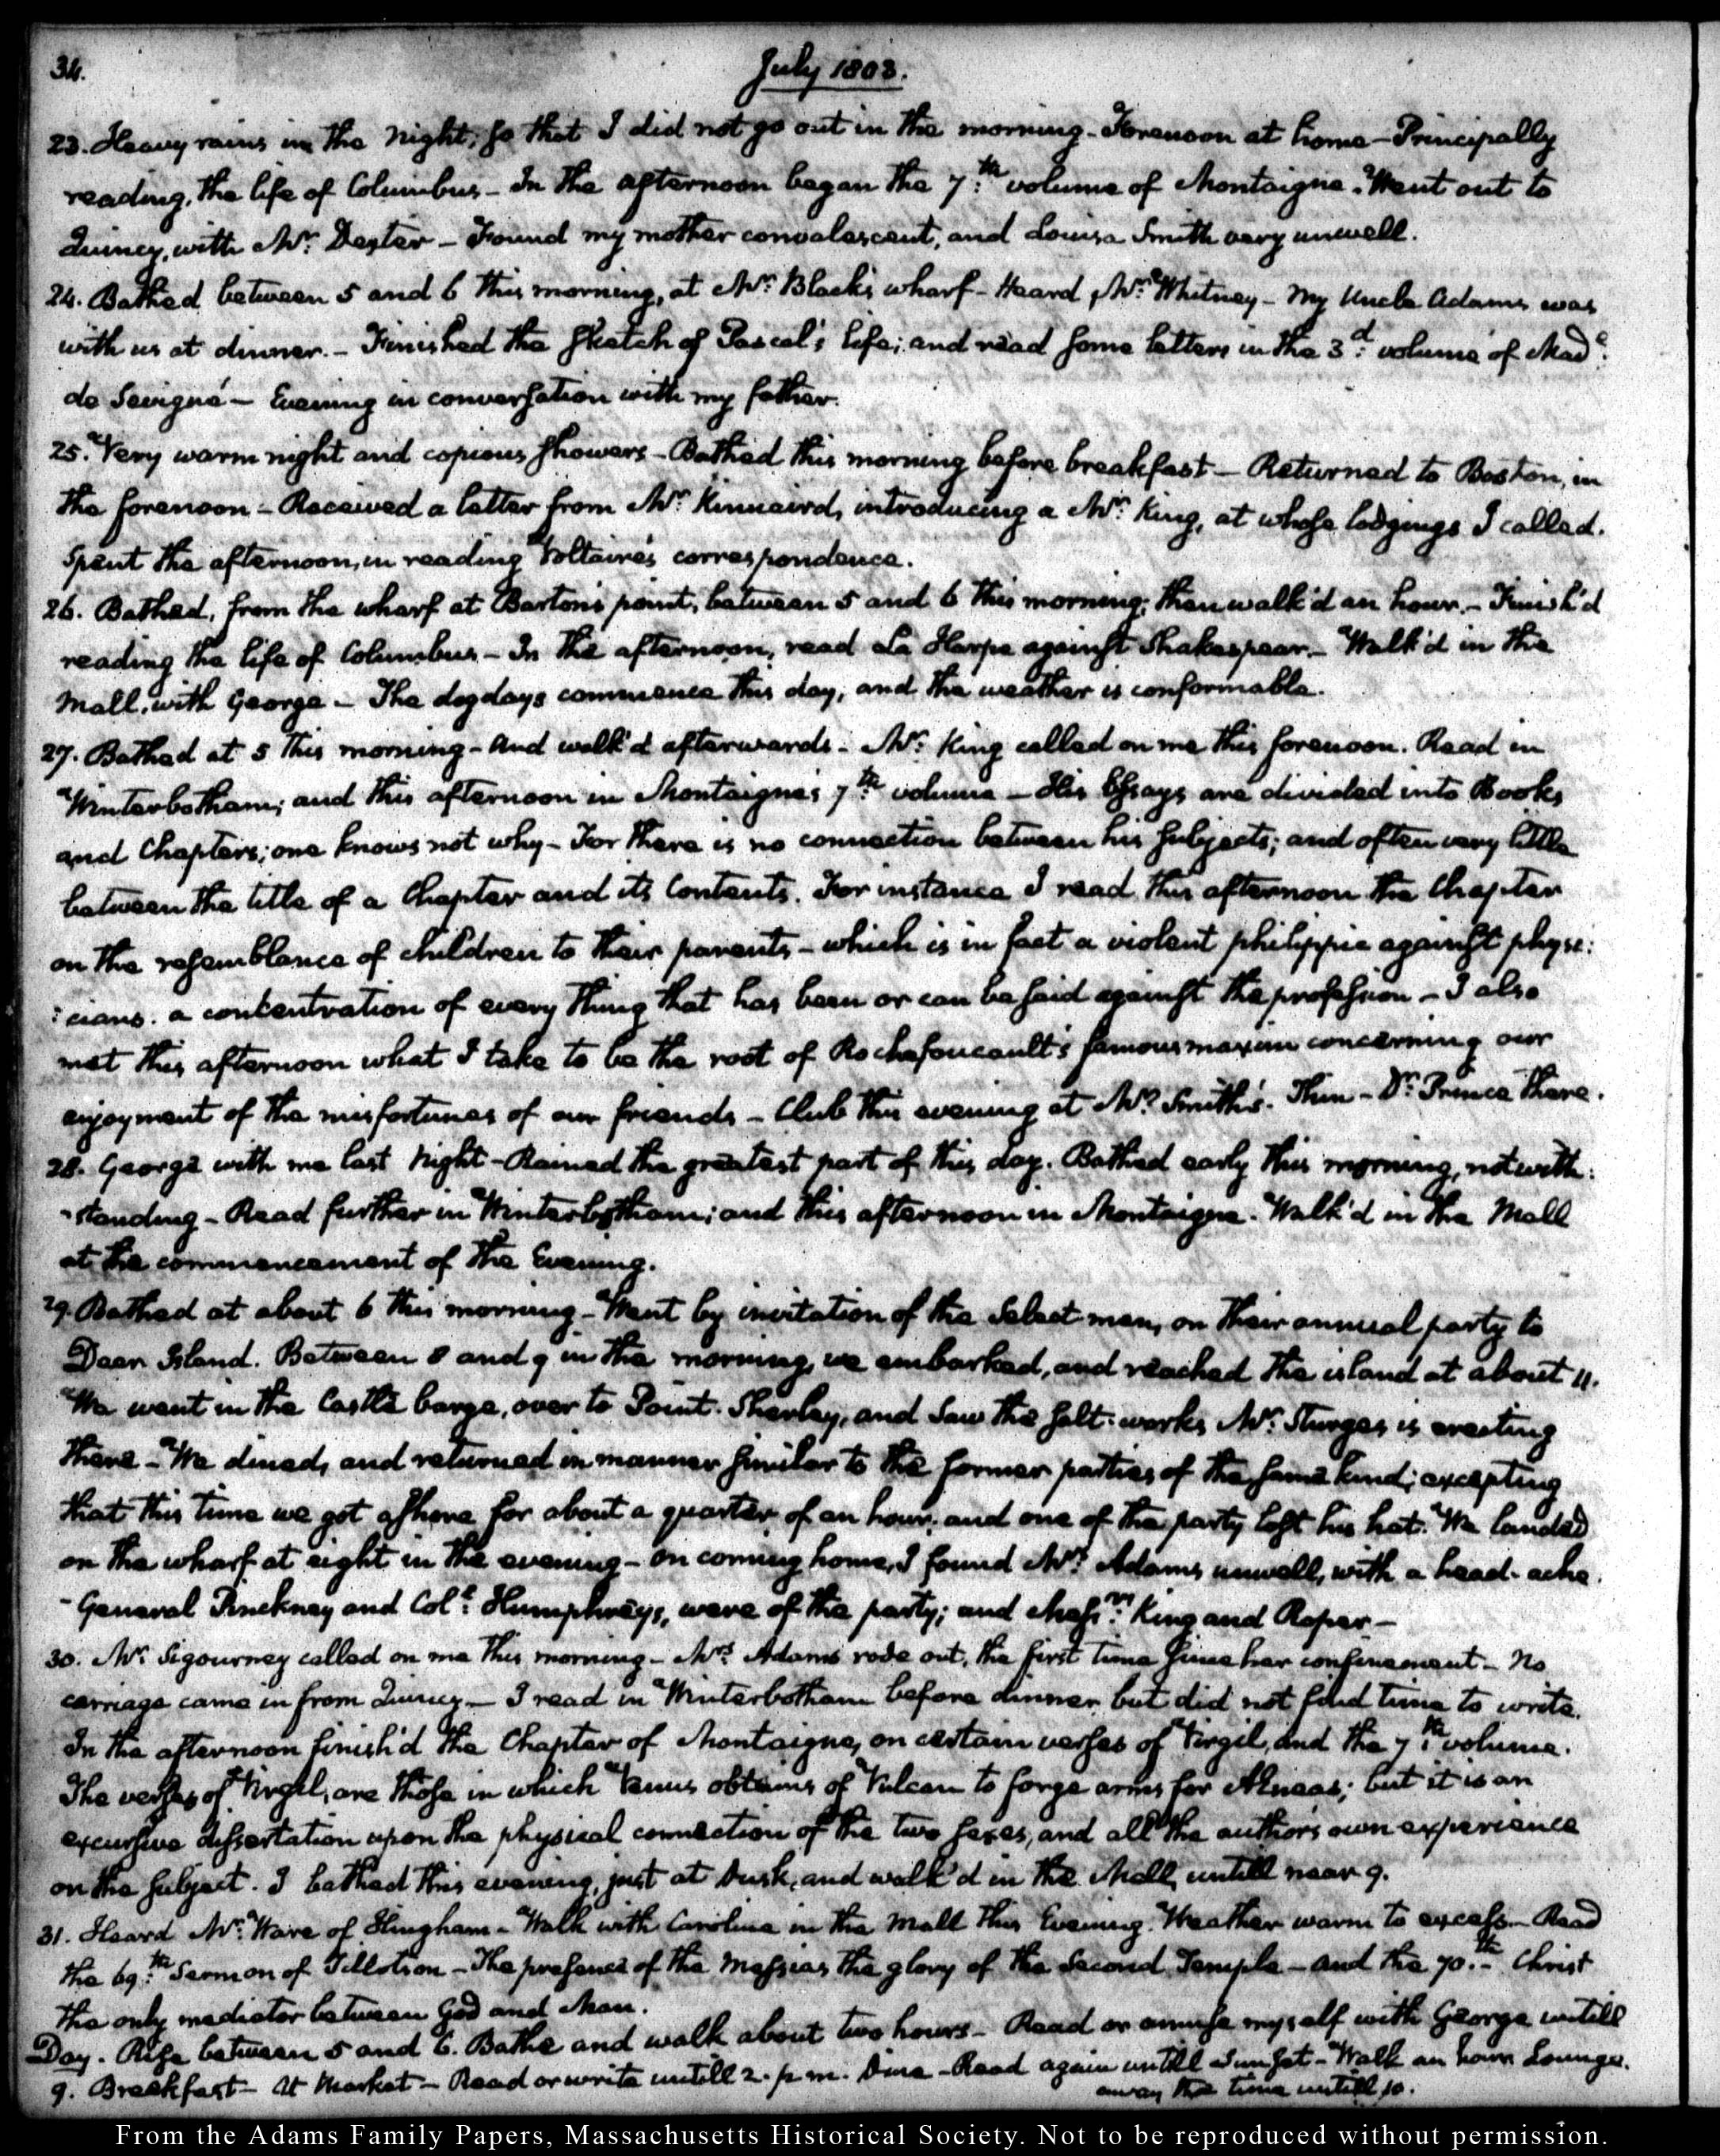 34.
July 1803.
23. Heavy rains in the night; so that I did not go out in the morning - Forenoon at home - Principally
reading, the life of Columbus - In the afternoon began the 7:th volume of Montaigne. Went out to
Quincy, with Mr: Dexter - Found my mother convalescent, and Louisa Smith very unwell.
24. Bathed between 5 and 6 this morning, at Mr: Black's wharf - Heard Mr: Whitney - My Uncle Adams was
with us at dinner. - Finished the sketch of Pascal's life; and read some letters in the 3:d volume of Mad:e
de Sevigné - Evening in conversation with my father.
25. Very warm night and copious showers - Bathed this morning before breakfast - Returned to Boston, in
the forenoon - Received a letter from Mr: Kinnaird, introducing a Mr: King, at whose lodgings I called.
Spent the afternoon, in reading Voltaire's correspondence.
26. Bathed, from the wharf at Barton's point, between 5 and 6 this morning; then walk'd an hour. - Finish'd
reading the life of Columbus - In the afternoon, read La Harpe against Shakespear. - Walk'd in the
Mall, with George - The dog days commence this day, and the weather is conformable.
27. Bathed at 5 this morning - And walk'd afterwards - Mr: King called on me this forenoon. Read in
Winterbotham; and this afternoon in Montaigne's 7:th volume - His Essays are divided into Books
and Chapters; one knows not why - For there is no connection between his subjects; and often very little
between the title of a Chapter and its Contents. For instance I read this afternoon the Chapter
on the resemblance of children to their parents - which is in fact a violent philippic against physi:
:cians. a concentration of every thing that has been or can be said against the profession - I also
met this afternoon what I take to be the root of Rochefoucault's famous maxim concerning our
enjoyment of the misfortunes of our friends - Club this evening at Mr: Smith's. Thin - Dr: Prince there.
28. George with me last night - Rained the greatest part of this day. Bathed early this morning, notwith:
-standing - Read further in Winterbotham; and this afternoon in Montaigne. Walk'd in the Mall
at the commencement of the Evening.
29. Bathed at about 6 this morning - Went by invitation of the Select-men, on their annual party to
Deer Island. Between 8 and 9 in the morning, we embarked, and reached the island at about 11.
We went in the Castle barge, over to Point-Sherley, and saw the salt-works Mr: Sturges is erecting
there - We dined, and returned in manner similar to the former parties of the same kind; excepting
that this time we got ashore for about a quarter of an hour; and one of the party lost his hat. We landed
on the wharf at eight in the evening - on coming home, I found Mrs: Adams unwell, with a head-ache.
- General Pinckney and Col:l Humphreys, were of the party; and Mess:rs King and Roper -
30. Mr: Sigourney called on me this morning - Mrs: Adams rode out, the first time since her confinement - No
carriage came in from Quincy - I read in Winterbotham before dinner, but did not find time to write.
In the afternoon finish'd the Chapter of Montaigne, on certain verses of Virgil, and the 7:th volume.
The verses of Virgil, are those in which Venus obtains of Vulcan to forge arms for Aeneas; but it is an
excursive dissertation upon the physical connection of the two sexes, and all the author's own experience
on the subject. I bathed this evening, just at Dusk, and walk'd in the Mall, untill near 9.
31. Heard Mr: Ware of Hingham - Walk with Caroline in the Mall this Evening. Weather warm to excess - Read
the 69:th Sermon of Tillotson - The presence of the Messias the glory of the Second Temple - and the 70:th Christ
the only mediator between God and Man.
Day. Rise between 5 and 6. Bathe and walk about two hours - Read or amuse myself with George untill
9. Breakfast - At Market - Read or write untill 2. p.m. Dine - Read again untill sunset - Walk an hour Lounge
away the time untill 10.
From the Adams Family Papers, Massachusetts Historical Society. Not to be reproduced without permission.